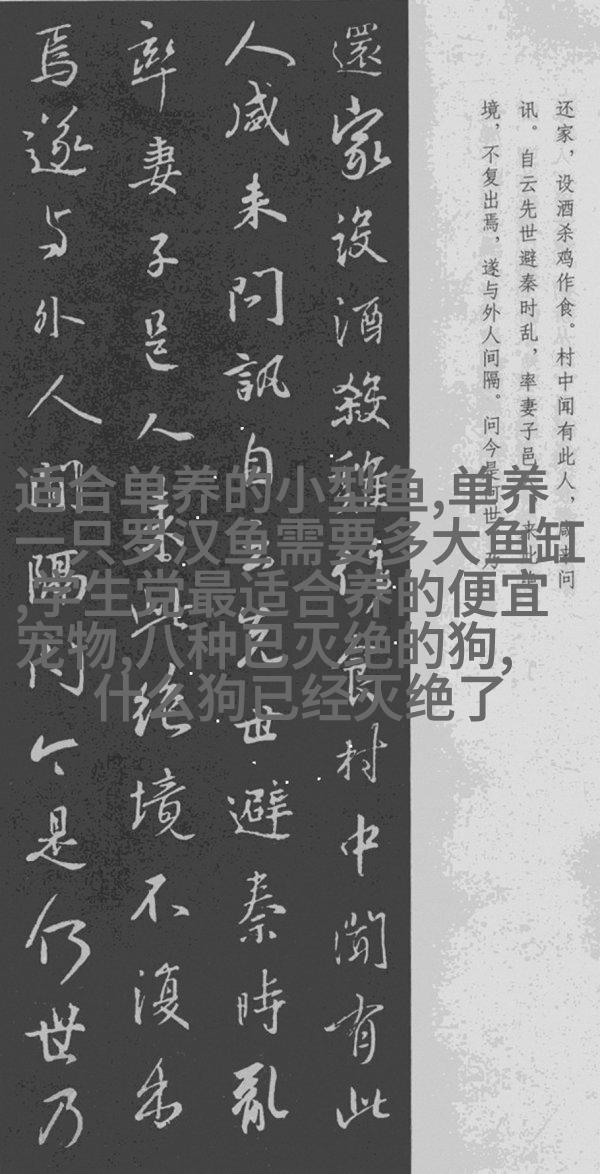 还家，设酒杀鸡作食。村中闻有此人，咸来问
讯。自云先世避秦时乱，率妻子邑来此
境，不复出焉，遂与外人间隔。问今是何世，乃
還家設酒殺雞作食村中聞有此
人咸来問訊自云先世避秦時亂
率妻子邑人来此絶境不復出
焉遂与外人間隔問今是何世乃
适合单养的小型鱼,单养
一只罗汉鱼需要多大鱼缸
,学生党最适合养的便宜
宠物,八种已灭绝的狗,
什么狗已经灭绝了